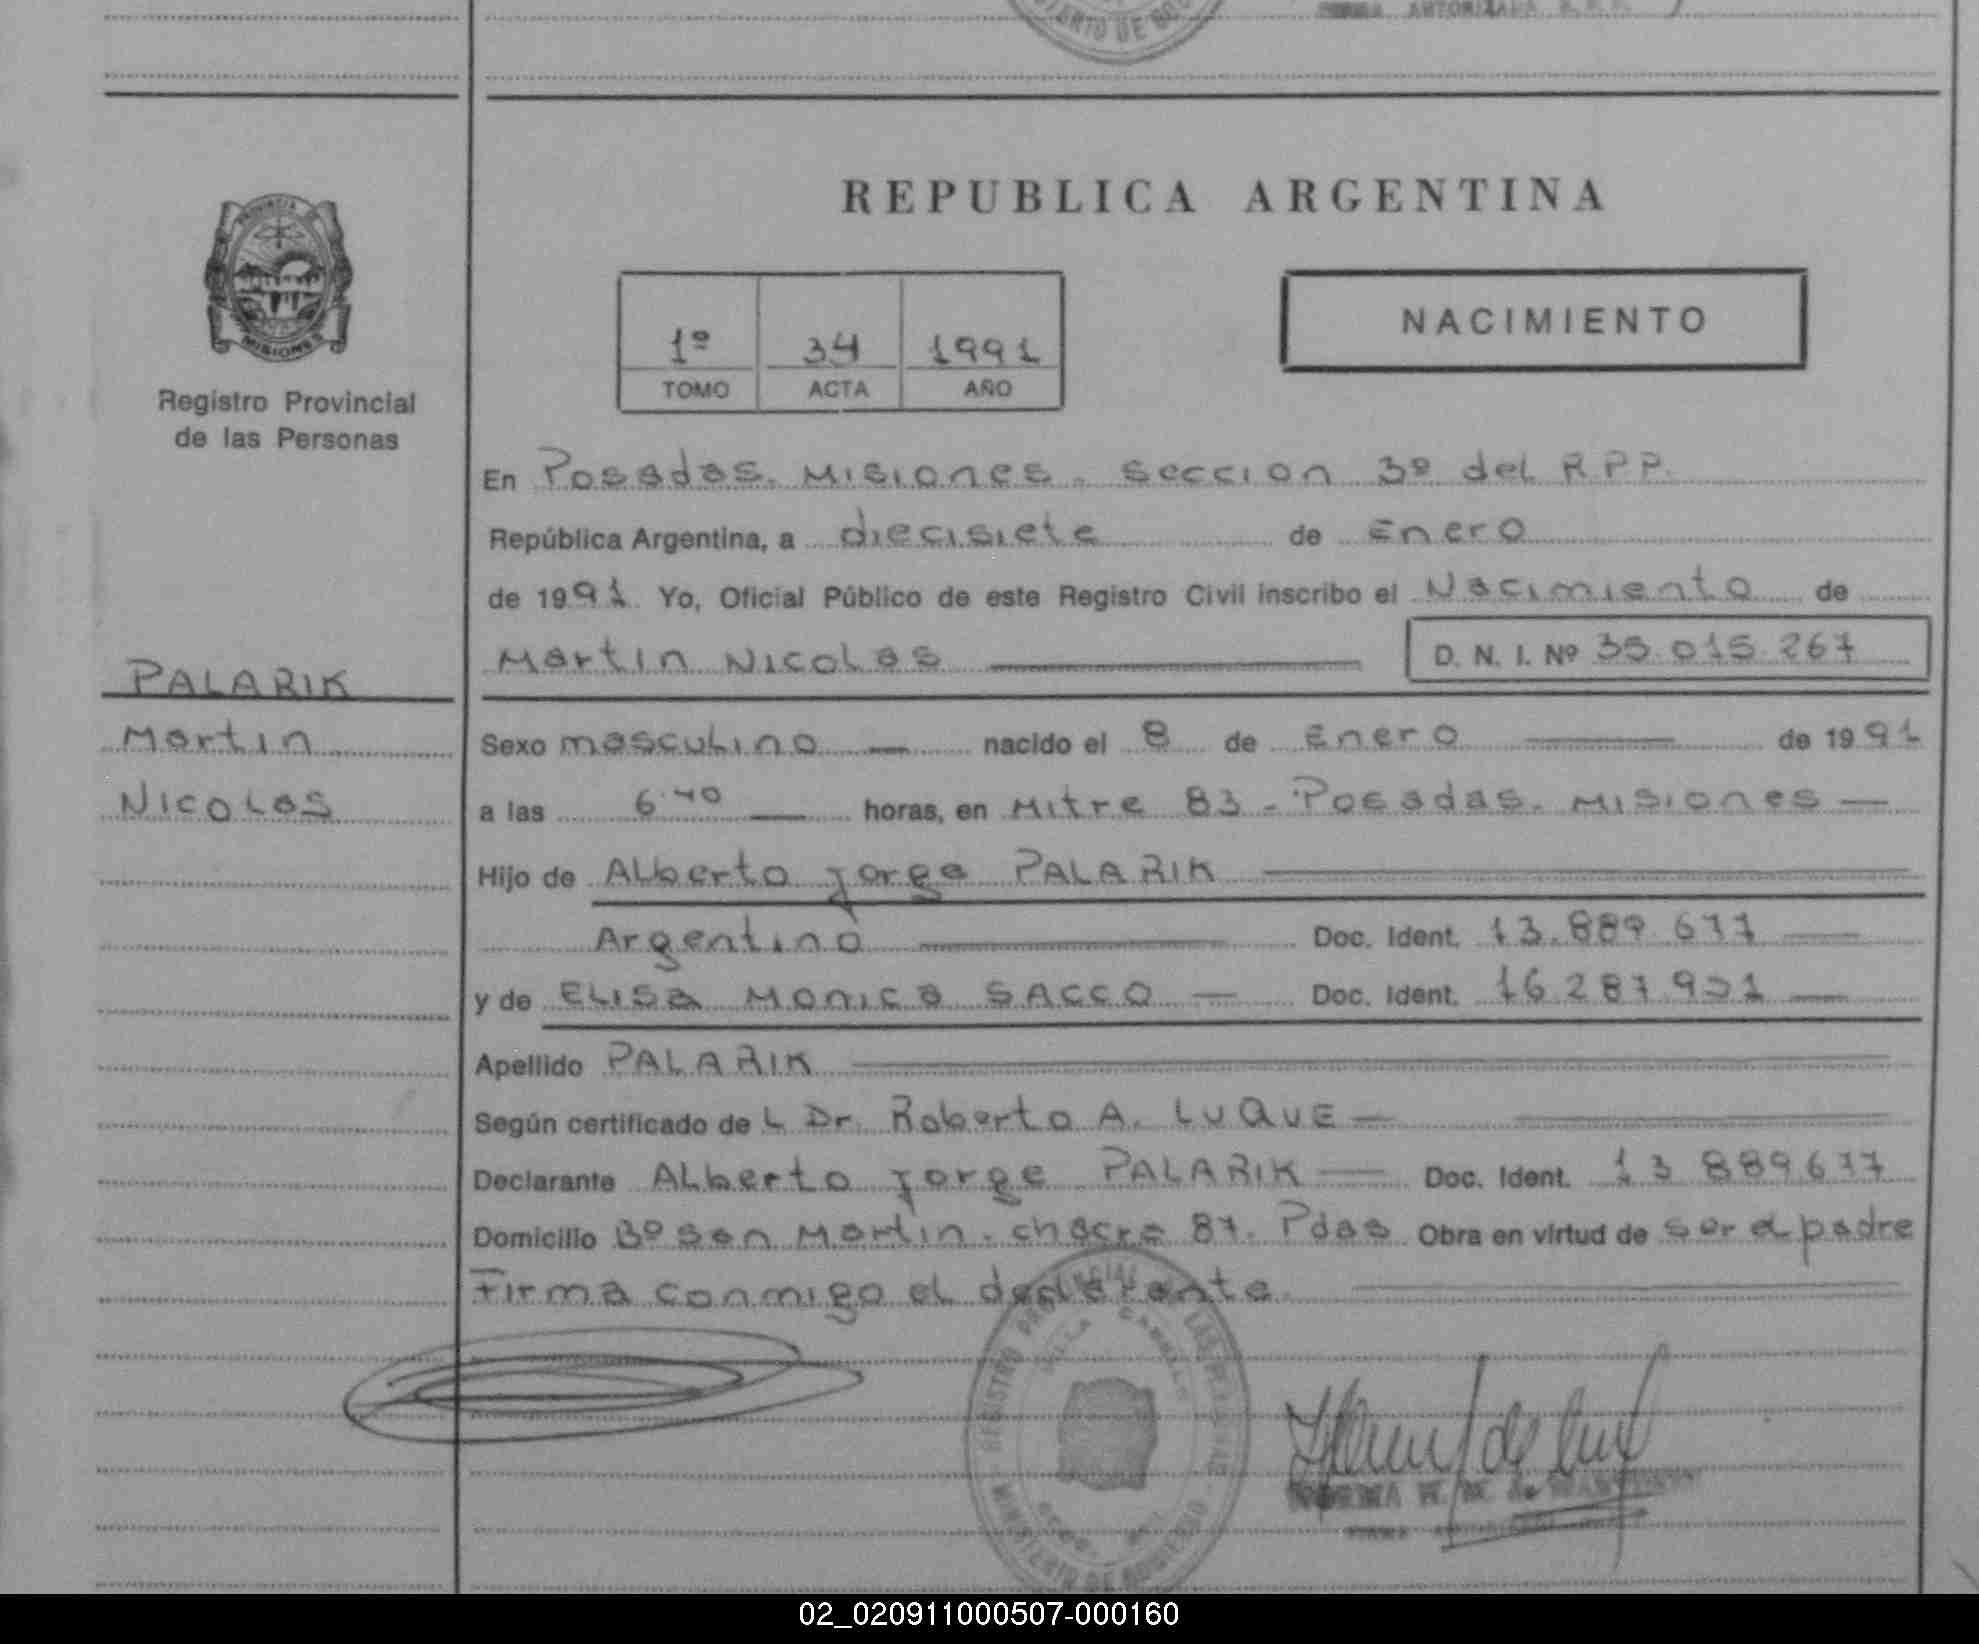 MINISTERIO DE GOBIERNO
FIRMA AUTORIZADA R.P.P.
PROVINCIA DE
MISIONES
Registro Provincial
de las Personas
PALARIK
Martin
Nicolas
REPUBLICA ARGENTINA
1º 34 1991
TOMO ACTA AÑO
NACIMIENTO
En Posadas. Misiones. seccion 3º del R.P.P.
República Argentina, a diecisiete de Enero
de 1991. Yo, Oficial Público de este Registro Civil inscribo el Nacimiento de
Martin Nicolas D. N. I. Nº 35.015.267
Sexo masculino nacido el 8 de Enero de 1991
a las 6.40 horas, en Mitre 83 - Posadas. Misiones
Hijo de Alberto Jorge PALARIK
Argentino Doc. Ident. 13.889.677
y de Elisa Monica SACCO Doc. Ident. 16.287.901
Apellido PALARIK
Según certificado de L Dr. Roberto A. LUQUE
Declarante Alberto Jorge PALARIK Doc. Ident. 13 889677
Domicilio Bº San Martin. chacra 87. Pdas Obra en virtud de ser el padre
Firma conmigo el declarante.
REGISTRO PROVINCIAL DE LAS PERSONAS
MINISTERIO DE GOBIERNO
02_020911000507-000160